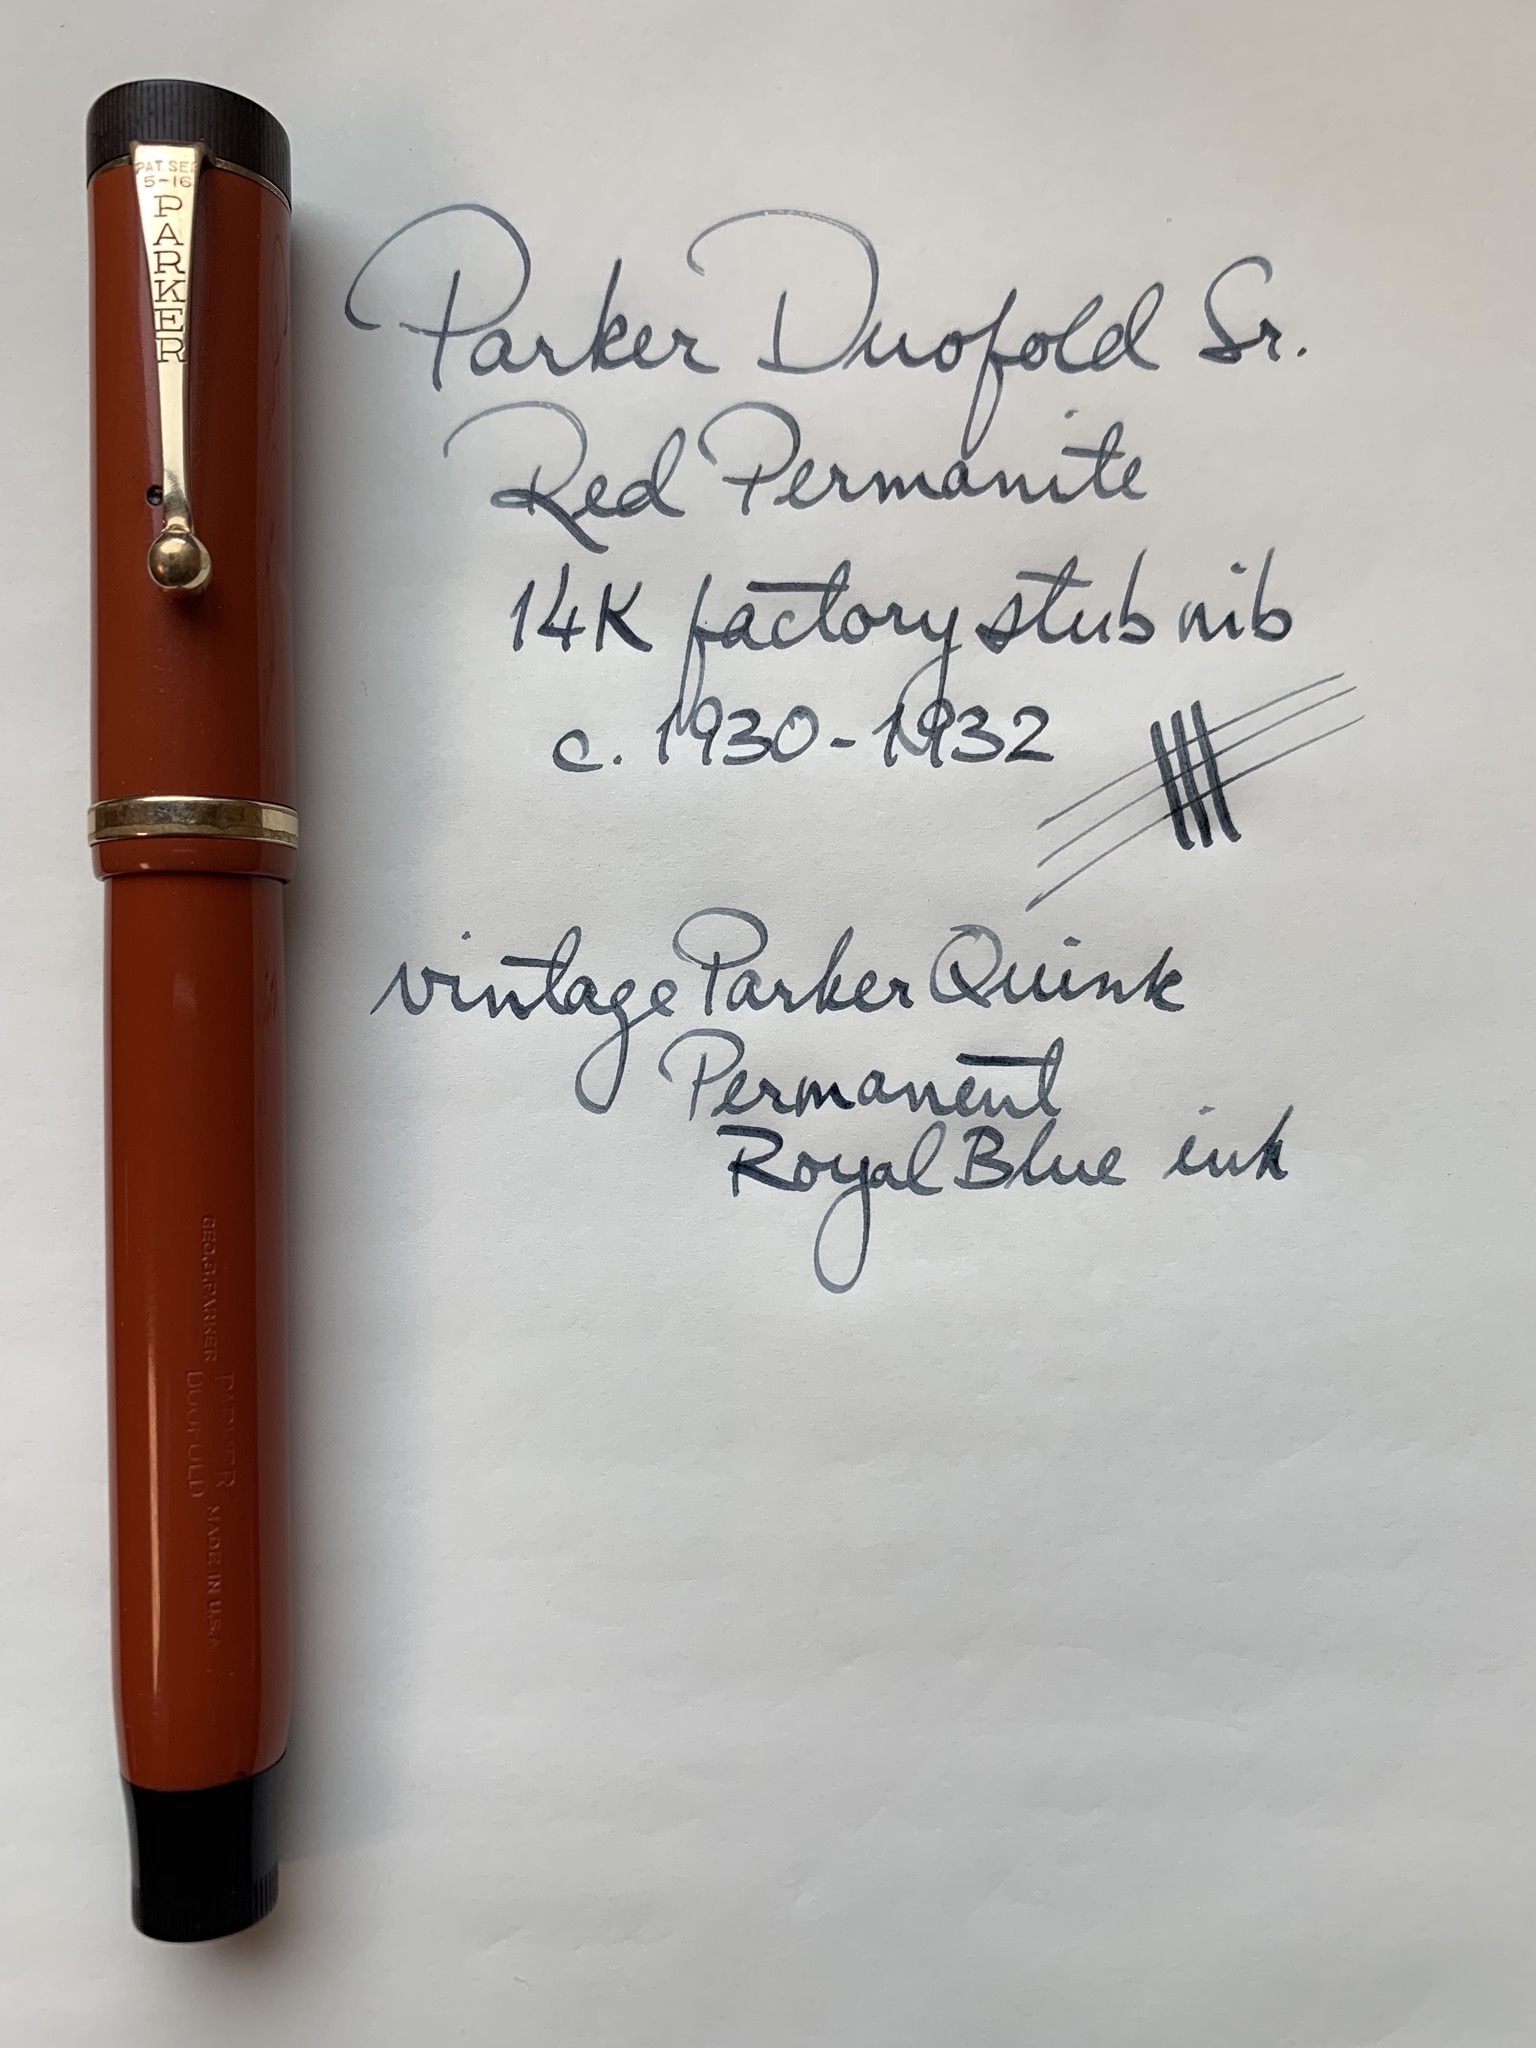 PAT. SEP
5-16
PARKER
Parker Duofold Sr.
Red Permanite
14K factory stub nib
c. 1930-1932
vintage Parker Quink
Permanent
Royal Blue ink
GEO. S. PARKER
PARKER
DUOFOLD
MADE IN U.S.A